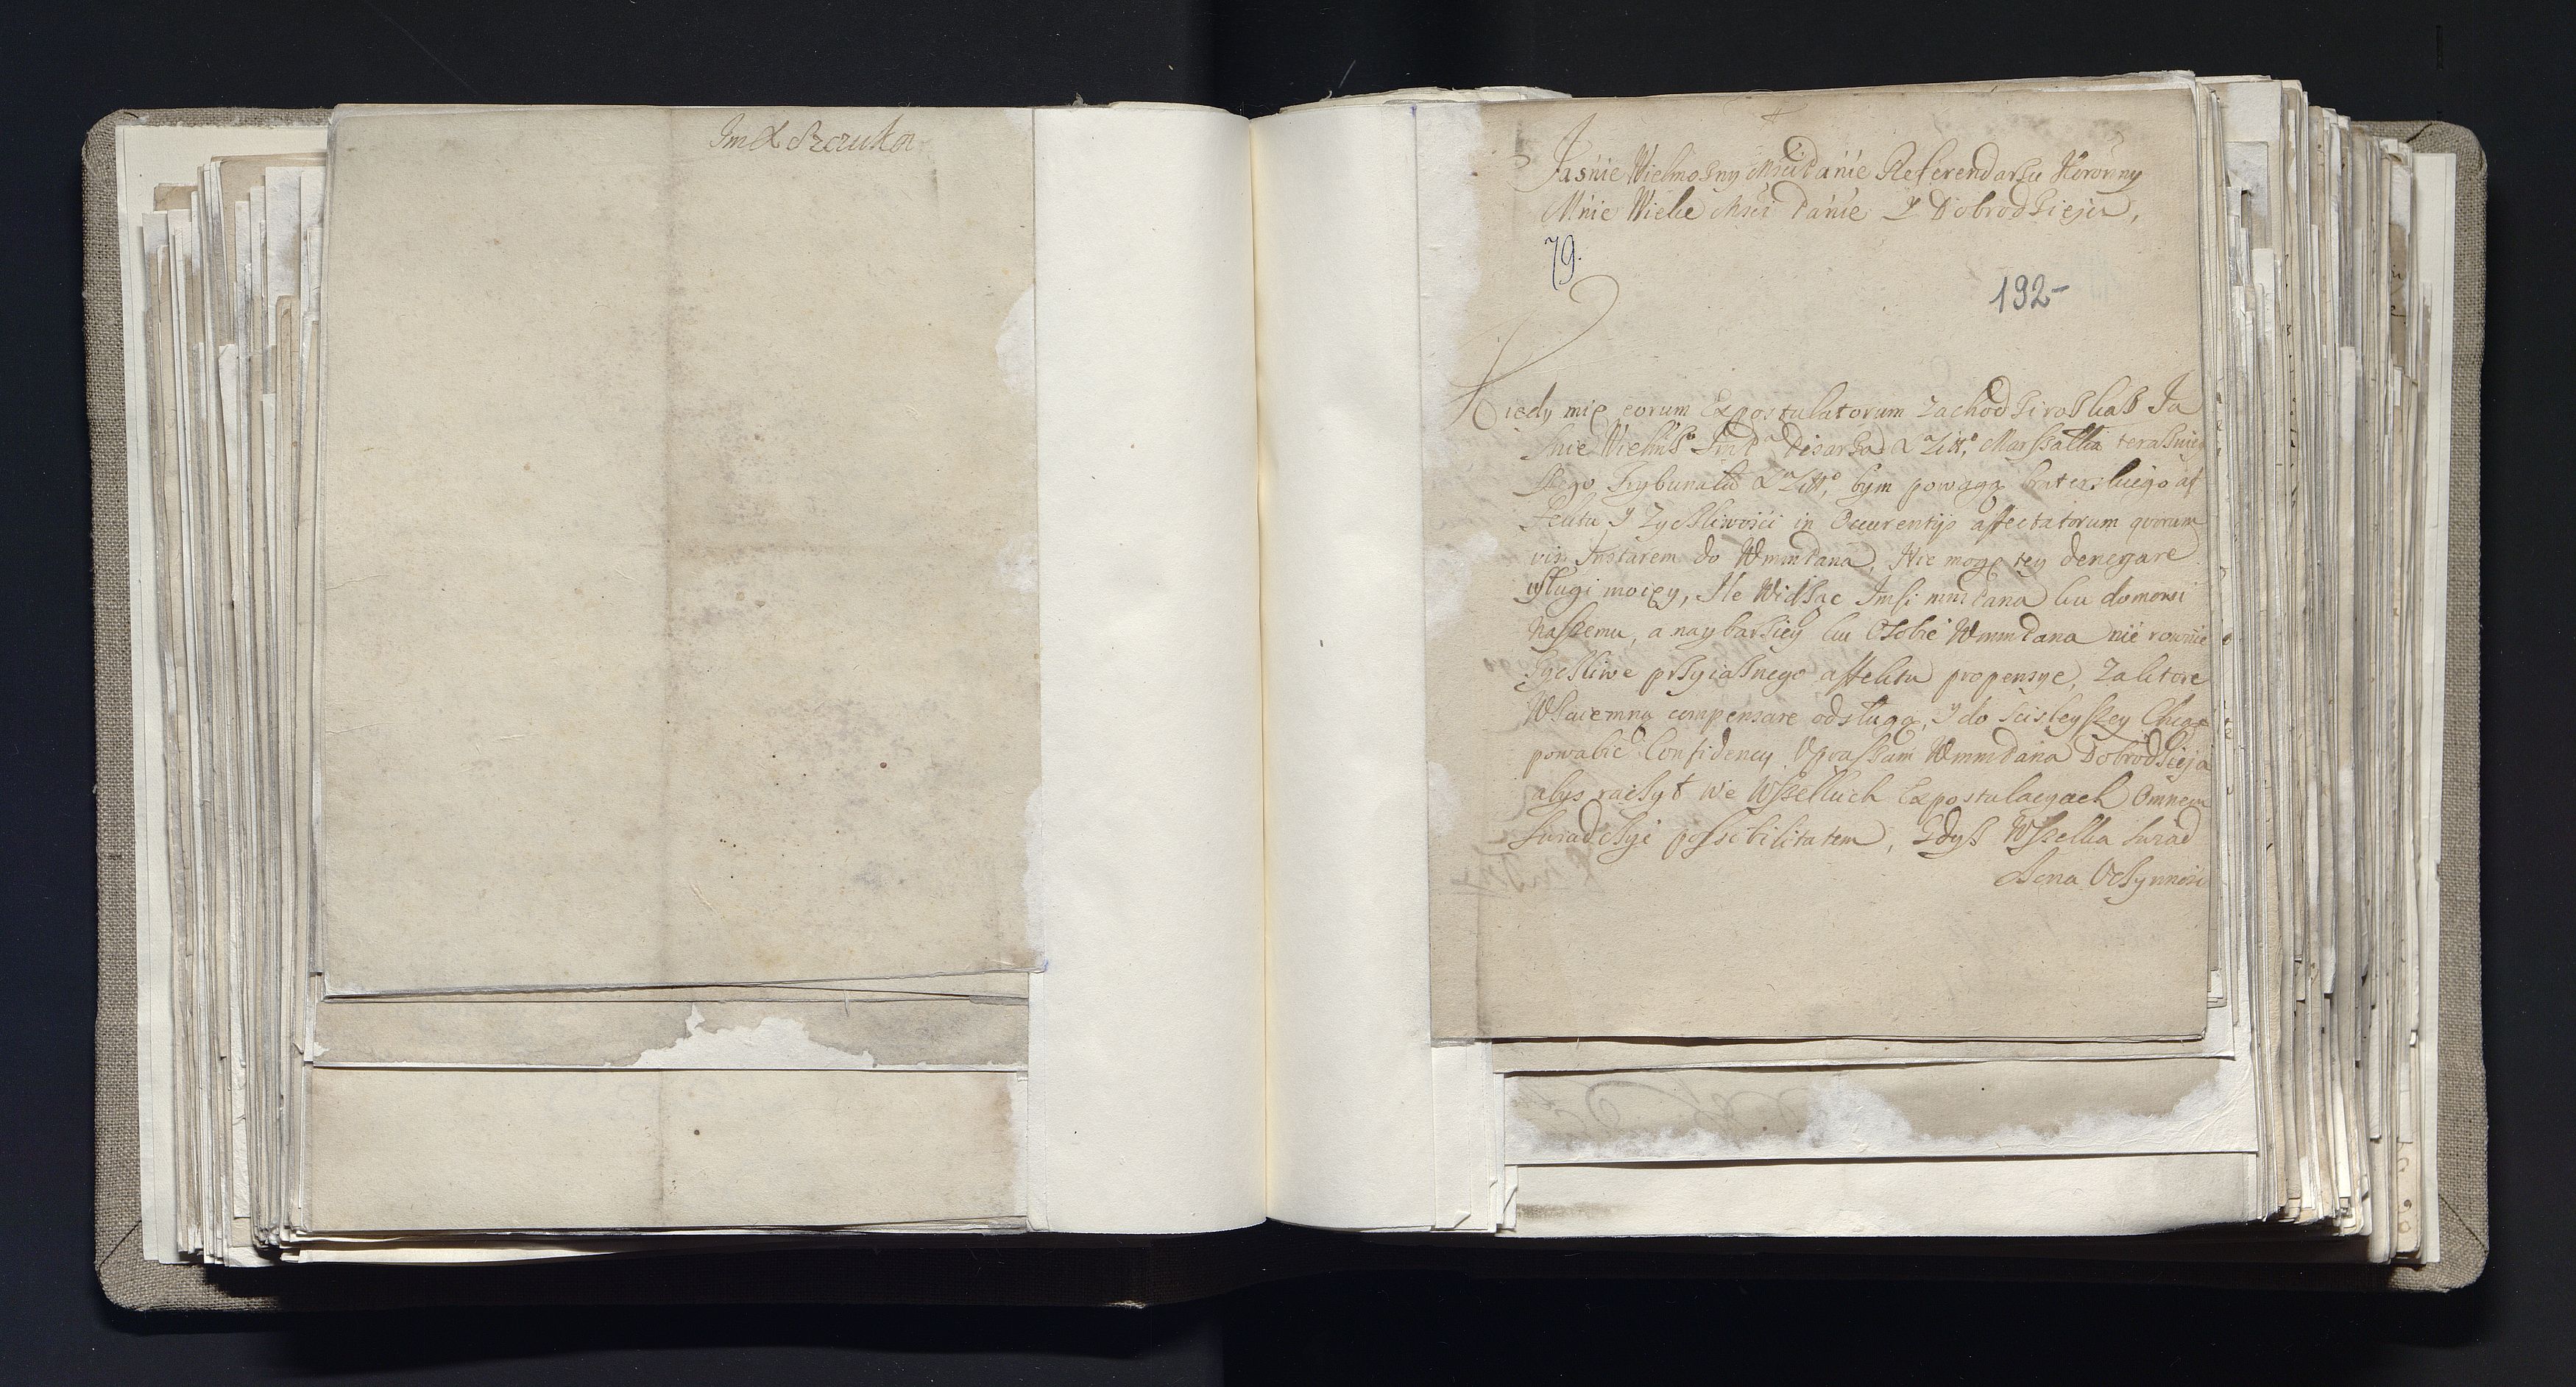 Imć Szczuka
Jasnie Wielmozny Msci Panie Referendarzu Koronny
Mnie Wielce Msci Panie y Dobrodzieju,
79.
192-
Kiedy mię eorum Expostulatorum zachodzi roskas Ja
snie Wielmo Pisarza Litt. Marszałka terasnie
szego Trybunału Litt. bym powagą braterskiego af
fektu y Zyczliwości in Occurentijs affectatorum quorum
vis Instarem do Wmmpana, Nie mogę tey denegare
usługi moiey, Ile Widząc Imsi mmPana ku domowi
Naszemu, a naybarziey ku Osobie WmmPana nie rownie
Zyczliwe przyiaznego affektu propensye, Za ktore
Wzaiemną compensare odsługą, y do scisleyszey Chcąc
powabić Confidency Upraszam WmmPana Dobrodzieja
abys raczył we Wszelkich Expostulacyach Omnem
swiadczyć possibilitatem, Gdysz Wszelka swiad
czona Uczynnosc